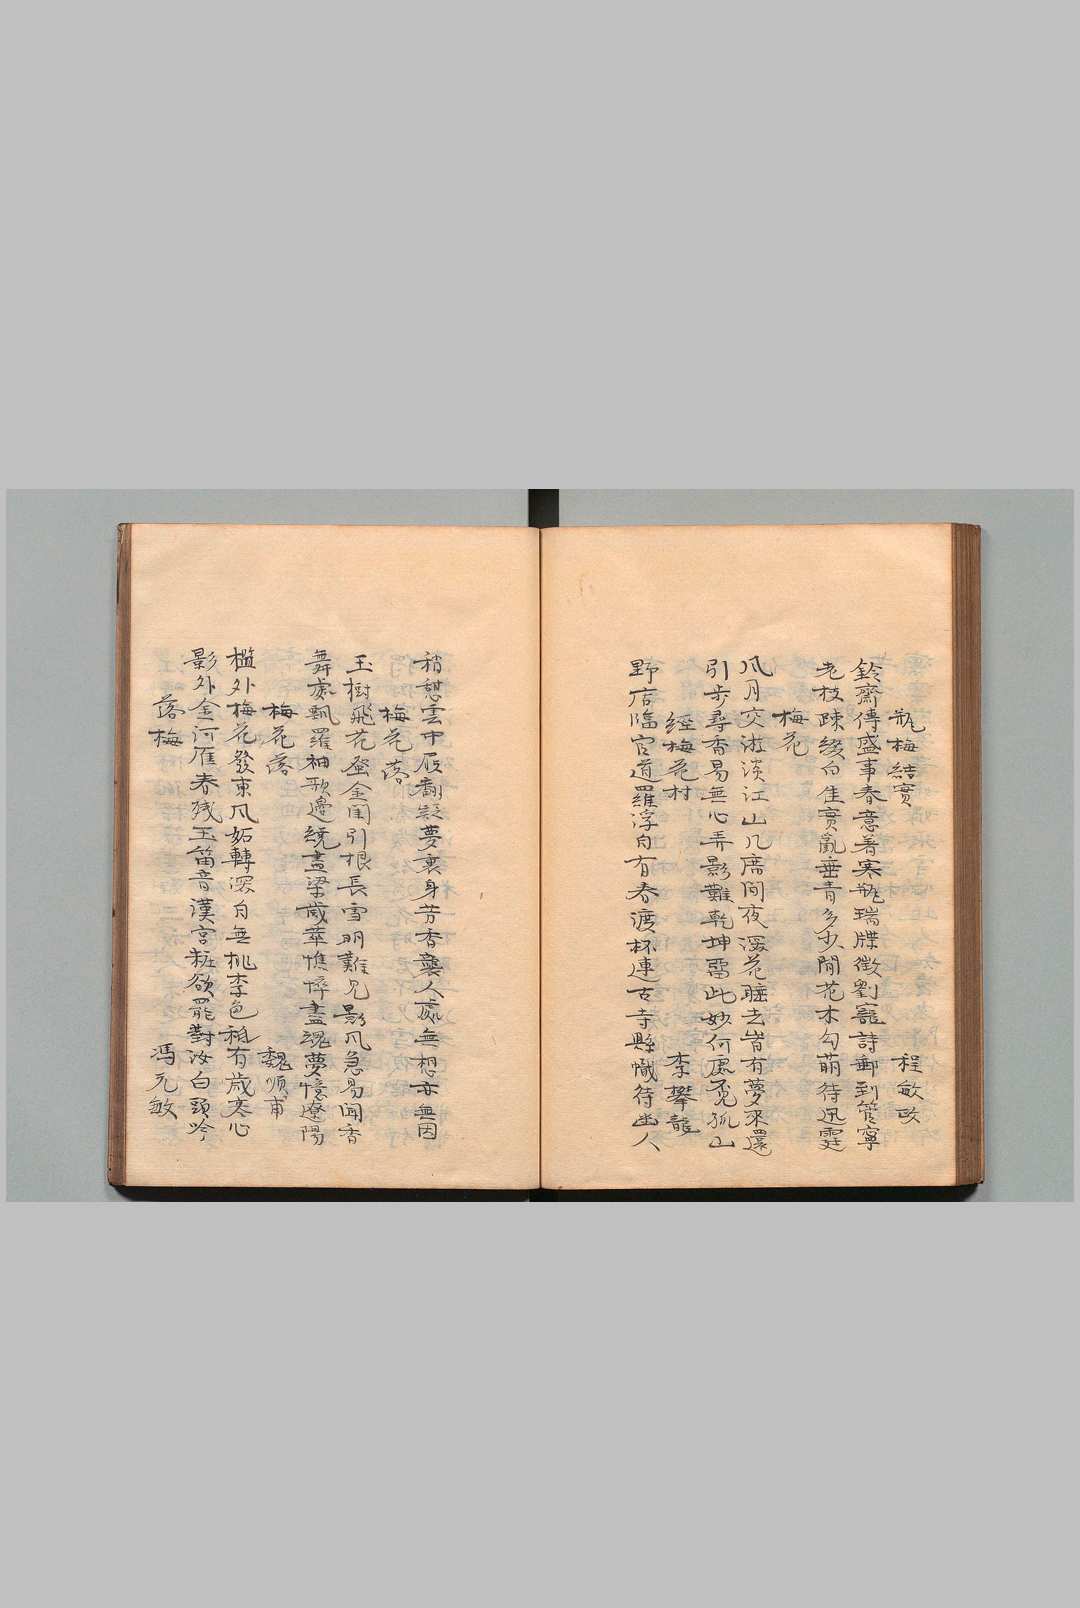 瓶梅結實 程敏政
鈴齋傳盛事春意著寒瓶瑞牒徵劉寵詩郵到管寧
老枝疎綴白佳實亂垂青多少閒花木勾萌待迅霆
梅花
風月交游淡江山几席間夜深花睡去皆有夢來還
引步尋香易無心弄影難乾坤留此妙何處覓孤山
經梅花村 李攀龍
野店臨官道羅浮自有春渡杯連古寺縣幟待幽人
稍憩雲中展翻疑夢裏身芳香襲人處無想亦無因
梅花落
玉樹飛花發金閨引恨長雪明難見影風急易聞香
舞處飄羅袖歌邊繞畫梁歲華憔悴盡魂夢憶遼陽
梅花落 魏順甫
檻外梅花發東風妬轉深自無桃李色秪有歲寒心
影外金河雁春殘玉笛音漢宮粧欲罷對汝白頭吟
落梅 馮元敏